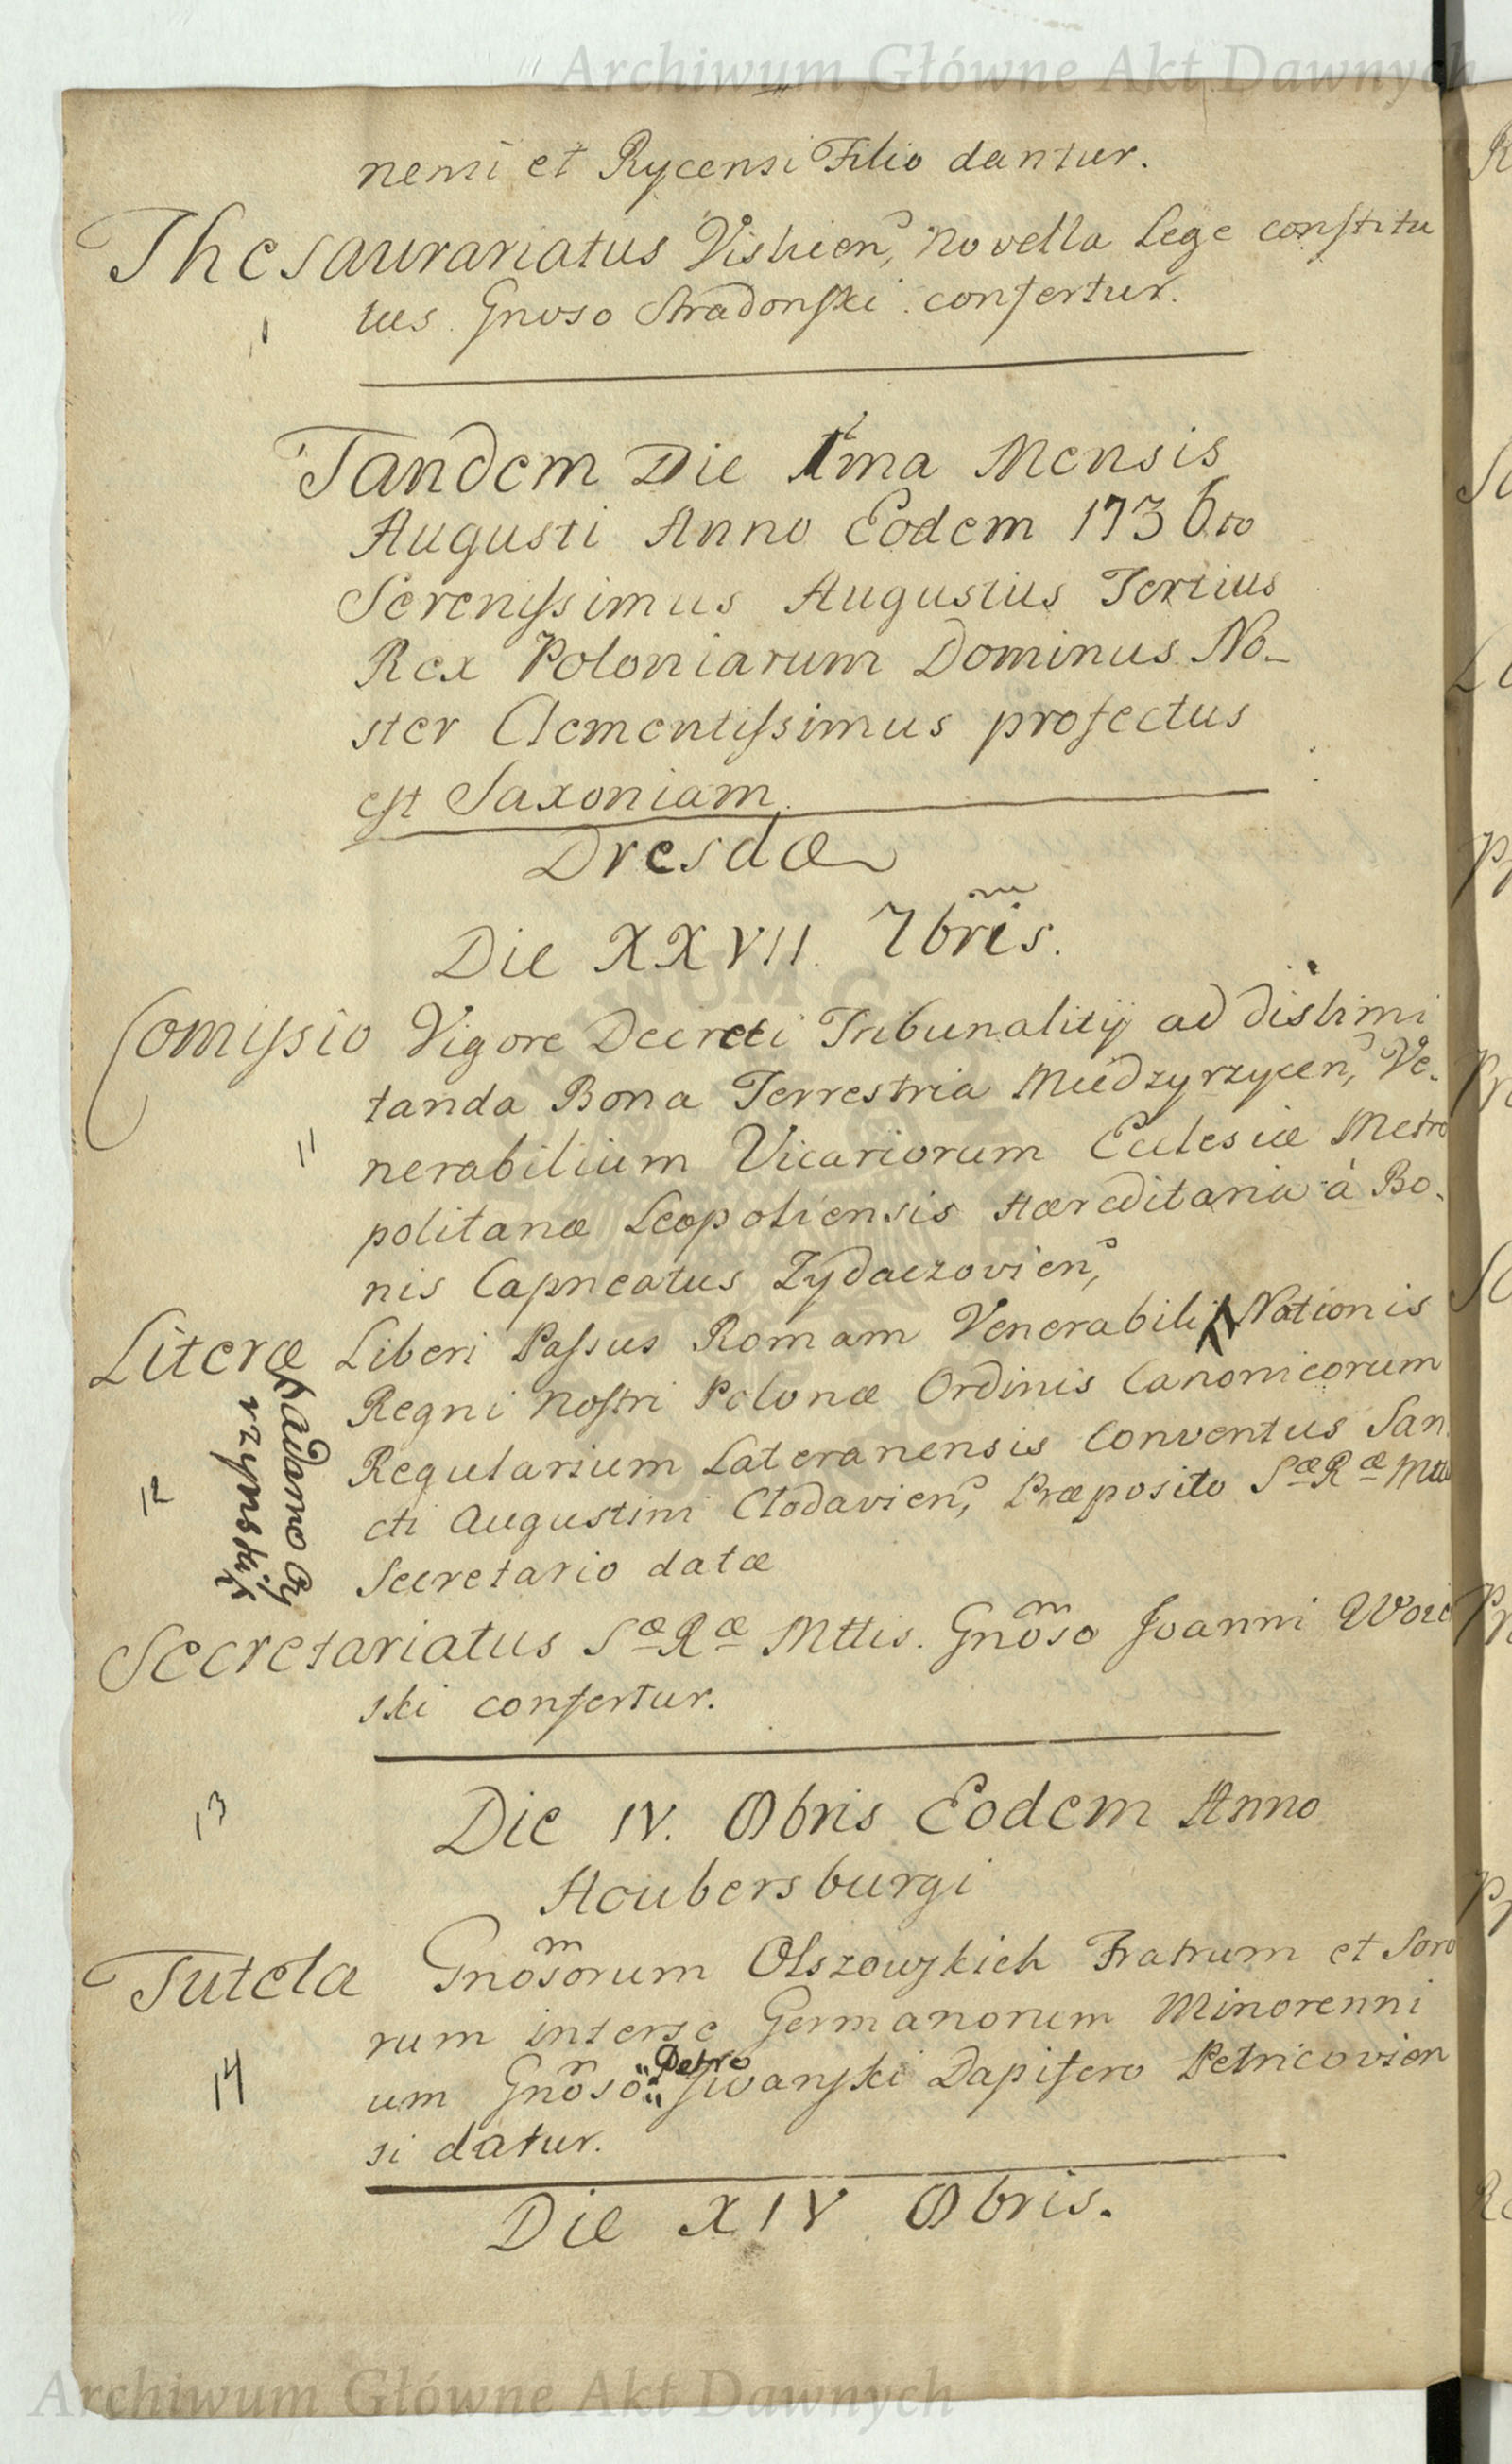 Archiwum Główne Akt Dawnych
nensi et Rycensi Filio dantur.
Thesaurariatus Vislicen, Novella Lege constitu
tus Gnoso Stradonski confertur.
1
Tandem Die 1ma Mensis
Augusti Anno Eodem 1736to
Serenissimus Augustus Tertius
Rex Poloniarum Dominus No-
ster Clementissimus profectus
est Saxoniam.
Dresdæ
Die XXVII. 7bris.
Comissio Vigore Decreti Tribunalitÿ ad dislimi
tanda Bona Terrestria Miedzyrzycen, Ve-
11
nerabilium Vicariorum Ecclesiæ Metro
politanæ Leopoliensis Hæreditaria à Bo-
nis Capneatus Zydaczovien,
Literæ Liberi Passus Romam Venerabili Nationis
Regni Nostri Polonæ Ordinis Canonicorum
Regularium Lateranensis Conventus San
12
cti Augustini Clodavien, Præposito Sæ Ræ Mtti
Secretario datæ
Secretariatus Sæ Ræ Mttis. Gnoso Joanni Woic
ski confertur.
13
Die IV. 8bris Eodem Anno
Houbersburgi
Tutela Gnosorum Olszowskich Fratrum et Soro
rum interse Germanorum Minorenni
14
um Gnoso Petro Siwanski Dapifero Petricovien
si datur.
Die XIV 8bris.
Archiwum Główne Akt Dawnych